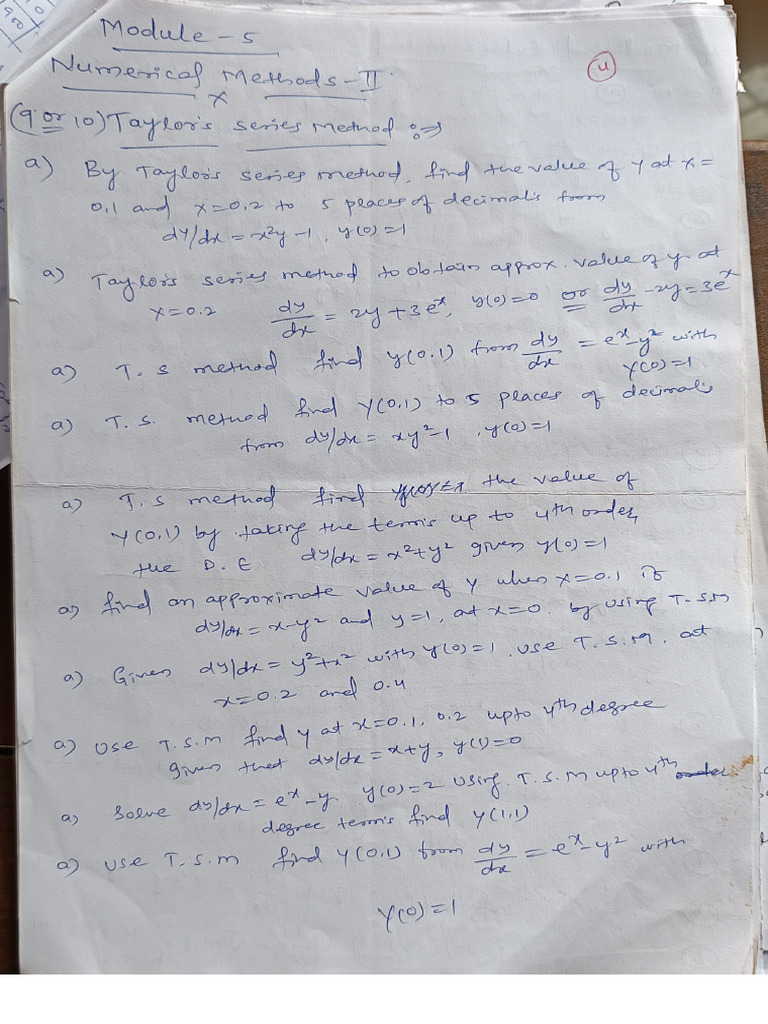 Module - 5
Numerical Methods - II
4
x
(9 or 10) Taylor's series Method :→
a) By Taylor's series method, find the value of y at x =
0.1 and x=0.2 to 5 places of decimals from
dy/dx = x²y-1, y(0)=1
a) Taylor's series method to obtain approx. value of y at
x=0.2 dy/dx = 2y+3eˣ, y(0)=0 or dy/dx - 2y = 3eˣ
a) T. S method find y(0.1) from dy/dx = eˣ-y² with
y(0)=1
a) T. S. method find y(0.1) to 5 places of decimals
from dy/dx = xy²-1, y(0)=1
a) T. S method find the value of
y(0.1) by taking the terms up to 4th order,
the D. E dy/dx = x²+y² given y(0)=1
a) find an approximate value of y when x=0.1 if
dy/dx = x-y² and y=1, at x=0. by using T. S.M
a) Given dy/dx = y²+x² with y(0)=1. use T. S. M. at
x=0.2 and 0.4
a) use T.S.M find y at x=0.1, 0.2 upto 4th degree
given that dy/dx = x+y, y(1)=0
a) Solve dy/dx = eˣ-y y(0)=2 using T. S. M upto 4th
degree terms find y(1.1)
a) use T. S. M find y(0.1) from dy/dx = eˣ-y² with
y(0)=1